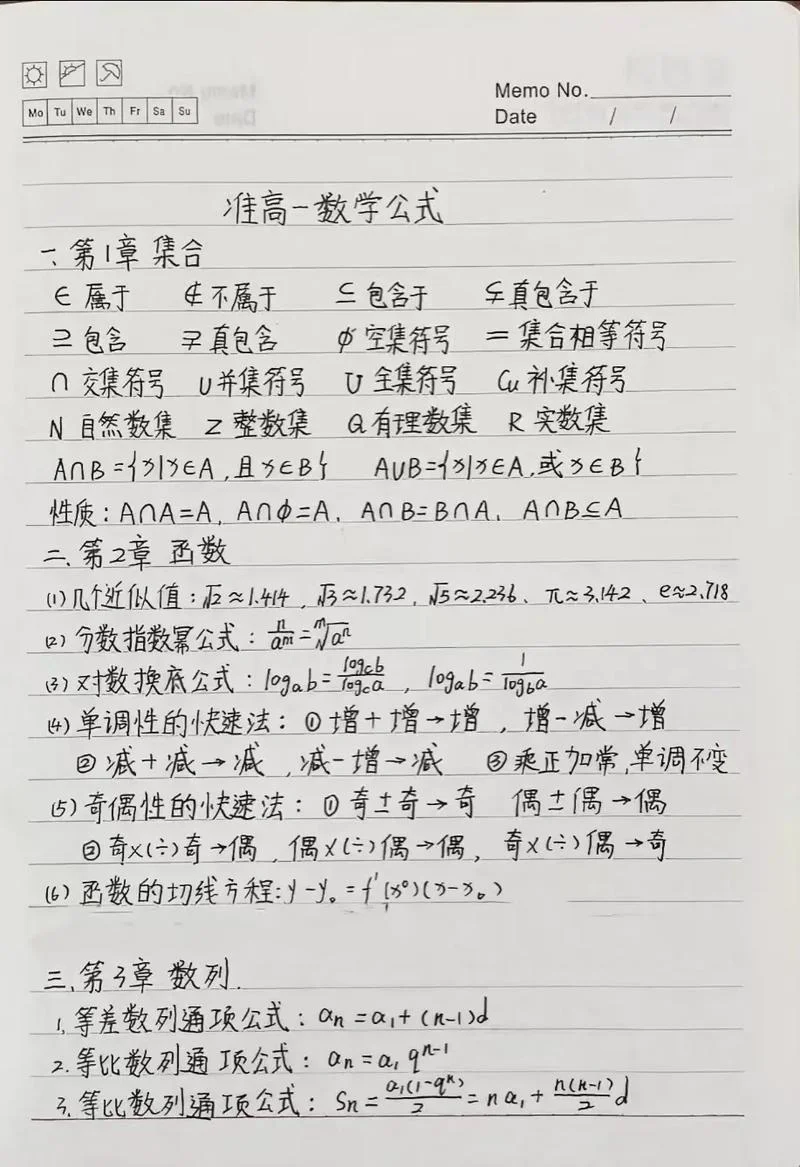 Memo No.
Mo Tu We Th Fr Sa Su
Date / /
准高一数学公式
一、第1章 集合
∈ 属于 ∉ 不属于 ⊆ 包含于 ⫋ 真包含于
⊇ 包含 ⫌ 真包含 ∅ 空集符号 = 集合相等符号
∩ 交集符号 ∪ 并集符号 U 全集符号 Cu 补集符号
N 自然数集 Z 整数集 Q 有理数集 R 实数集
A∩B={x|x∈A,且x∈B} A∪B={x|x∈A,或x∈B}
性质:A∩A=A, A∩ϕ=A, A∩B=B∩A, A∩B⊆A
二、第2章 函数
(1)几个近似值:√2≈1.414,√3≈1.732,√5≈2.236、π≈3.142、e≈2.718
(2) 分数指数幂公式:n/aᵐ=ᵐ√aⁿ
(3) 对数换底公式:logab=logcb/logca,logab=1/logba
(4) 单调性的快速法:①增+增→增,增-减→增
②减+减→减,减-增→减 ③乘正加常,单调不变
(5) 奇偶性的快速法:①奇±奇→奇 偶±偶→偶
②奇×(÷)奇→偶,偶×(÷)偶→偶,奇×(÷)偶→奇
(6) 函数的切线方程:y-y₀=f'(x⁰)(x-x₀)
三、第3章 数列.
1、等差数列通项公式:an=a₁+(n-1)d
2、等比数列通项公式:an=a₁qⁿ⁻¹
3、等比数列通项公式:Sn=a₁(1-qⁿ)/2=na₁+n(n-1)/2 d